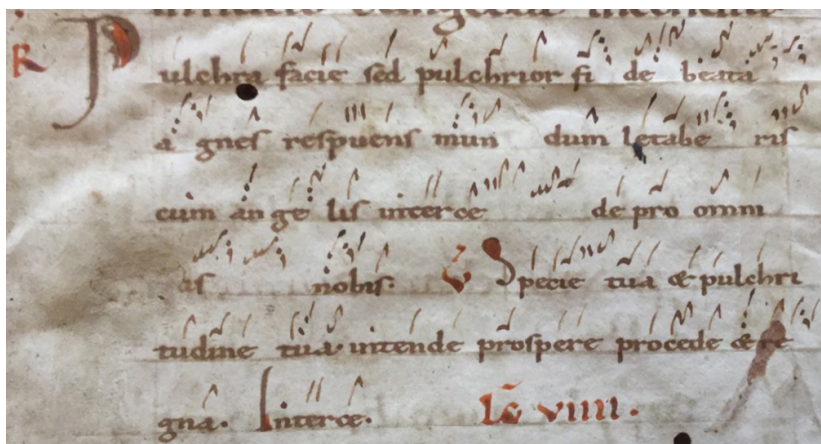 R Pulchra facie sed pulchrior fi de beata
a gnes respuens mun dum letabe ris
cum an ge lis interce de pro omni
us nobis. V Specie tua & pulchri
tudine tua intende prospere procede & re
gna. Interce. Lc viiii.